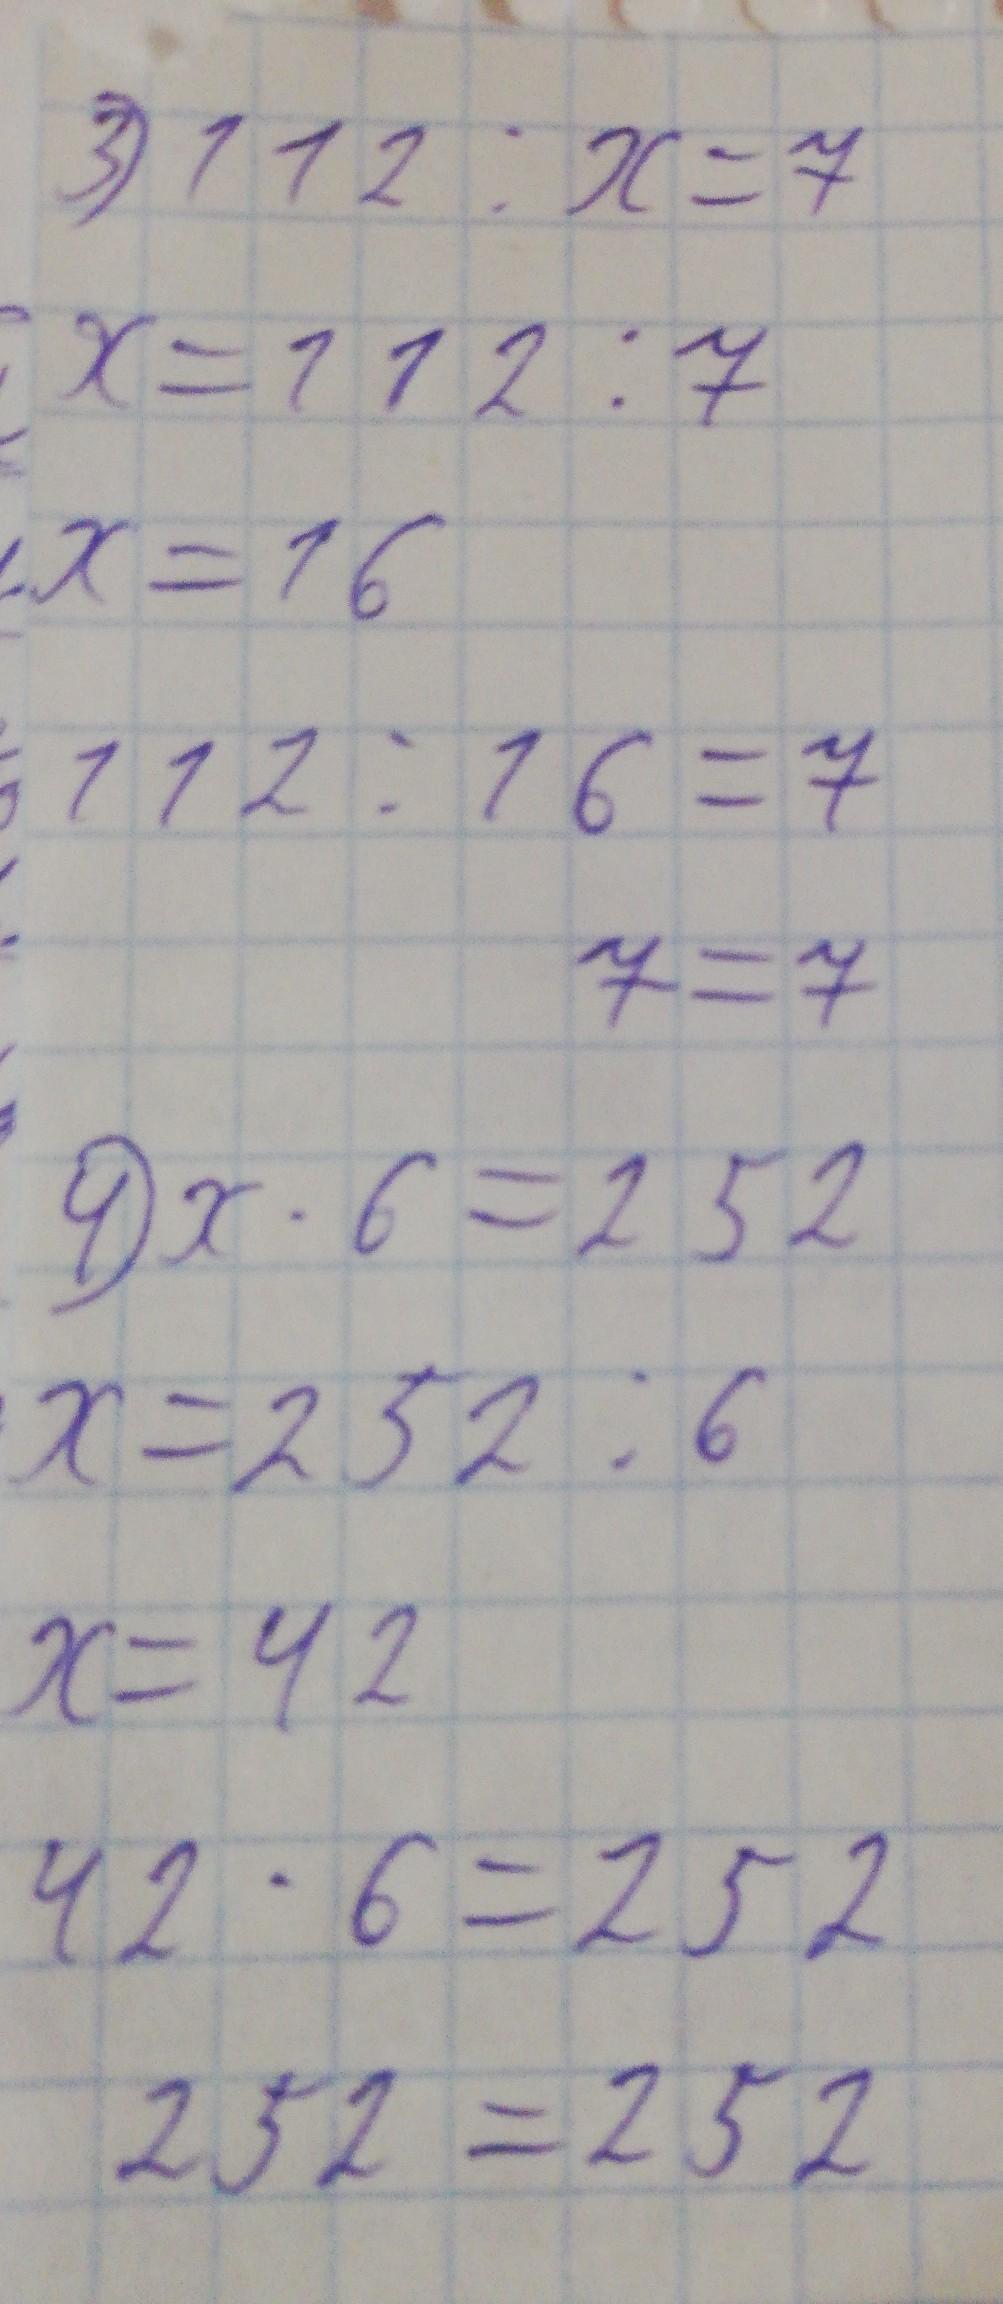 3) 112 : x = 7
x = 112 : 7
x = 16
112 : 16 = 7
7 = 7
4) x · 6 = 252
x = 252 : 6
x = 42
42 · 6 = 252
252 = 252